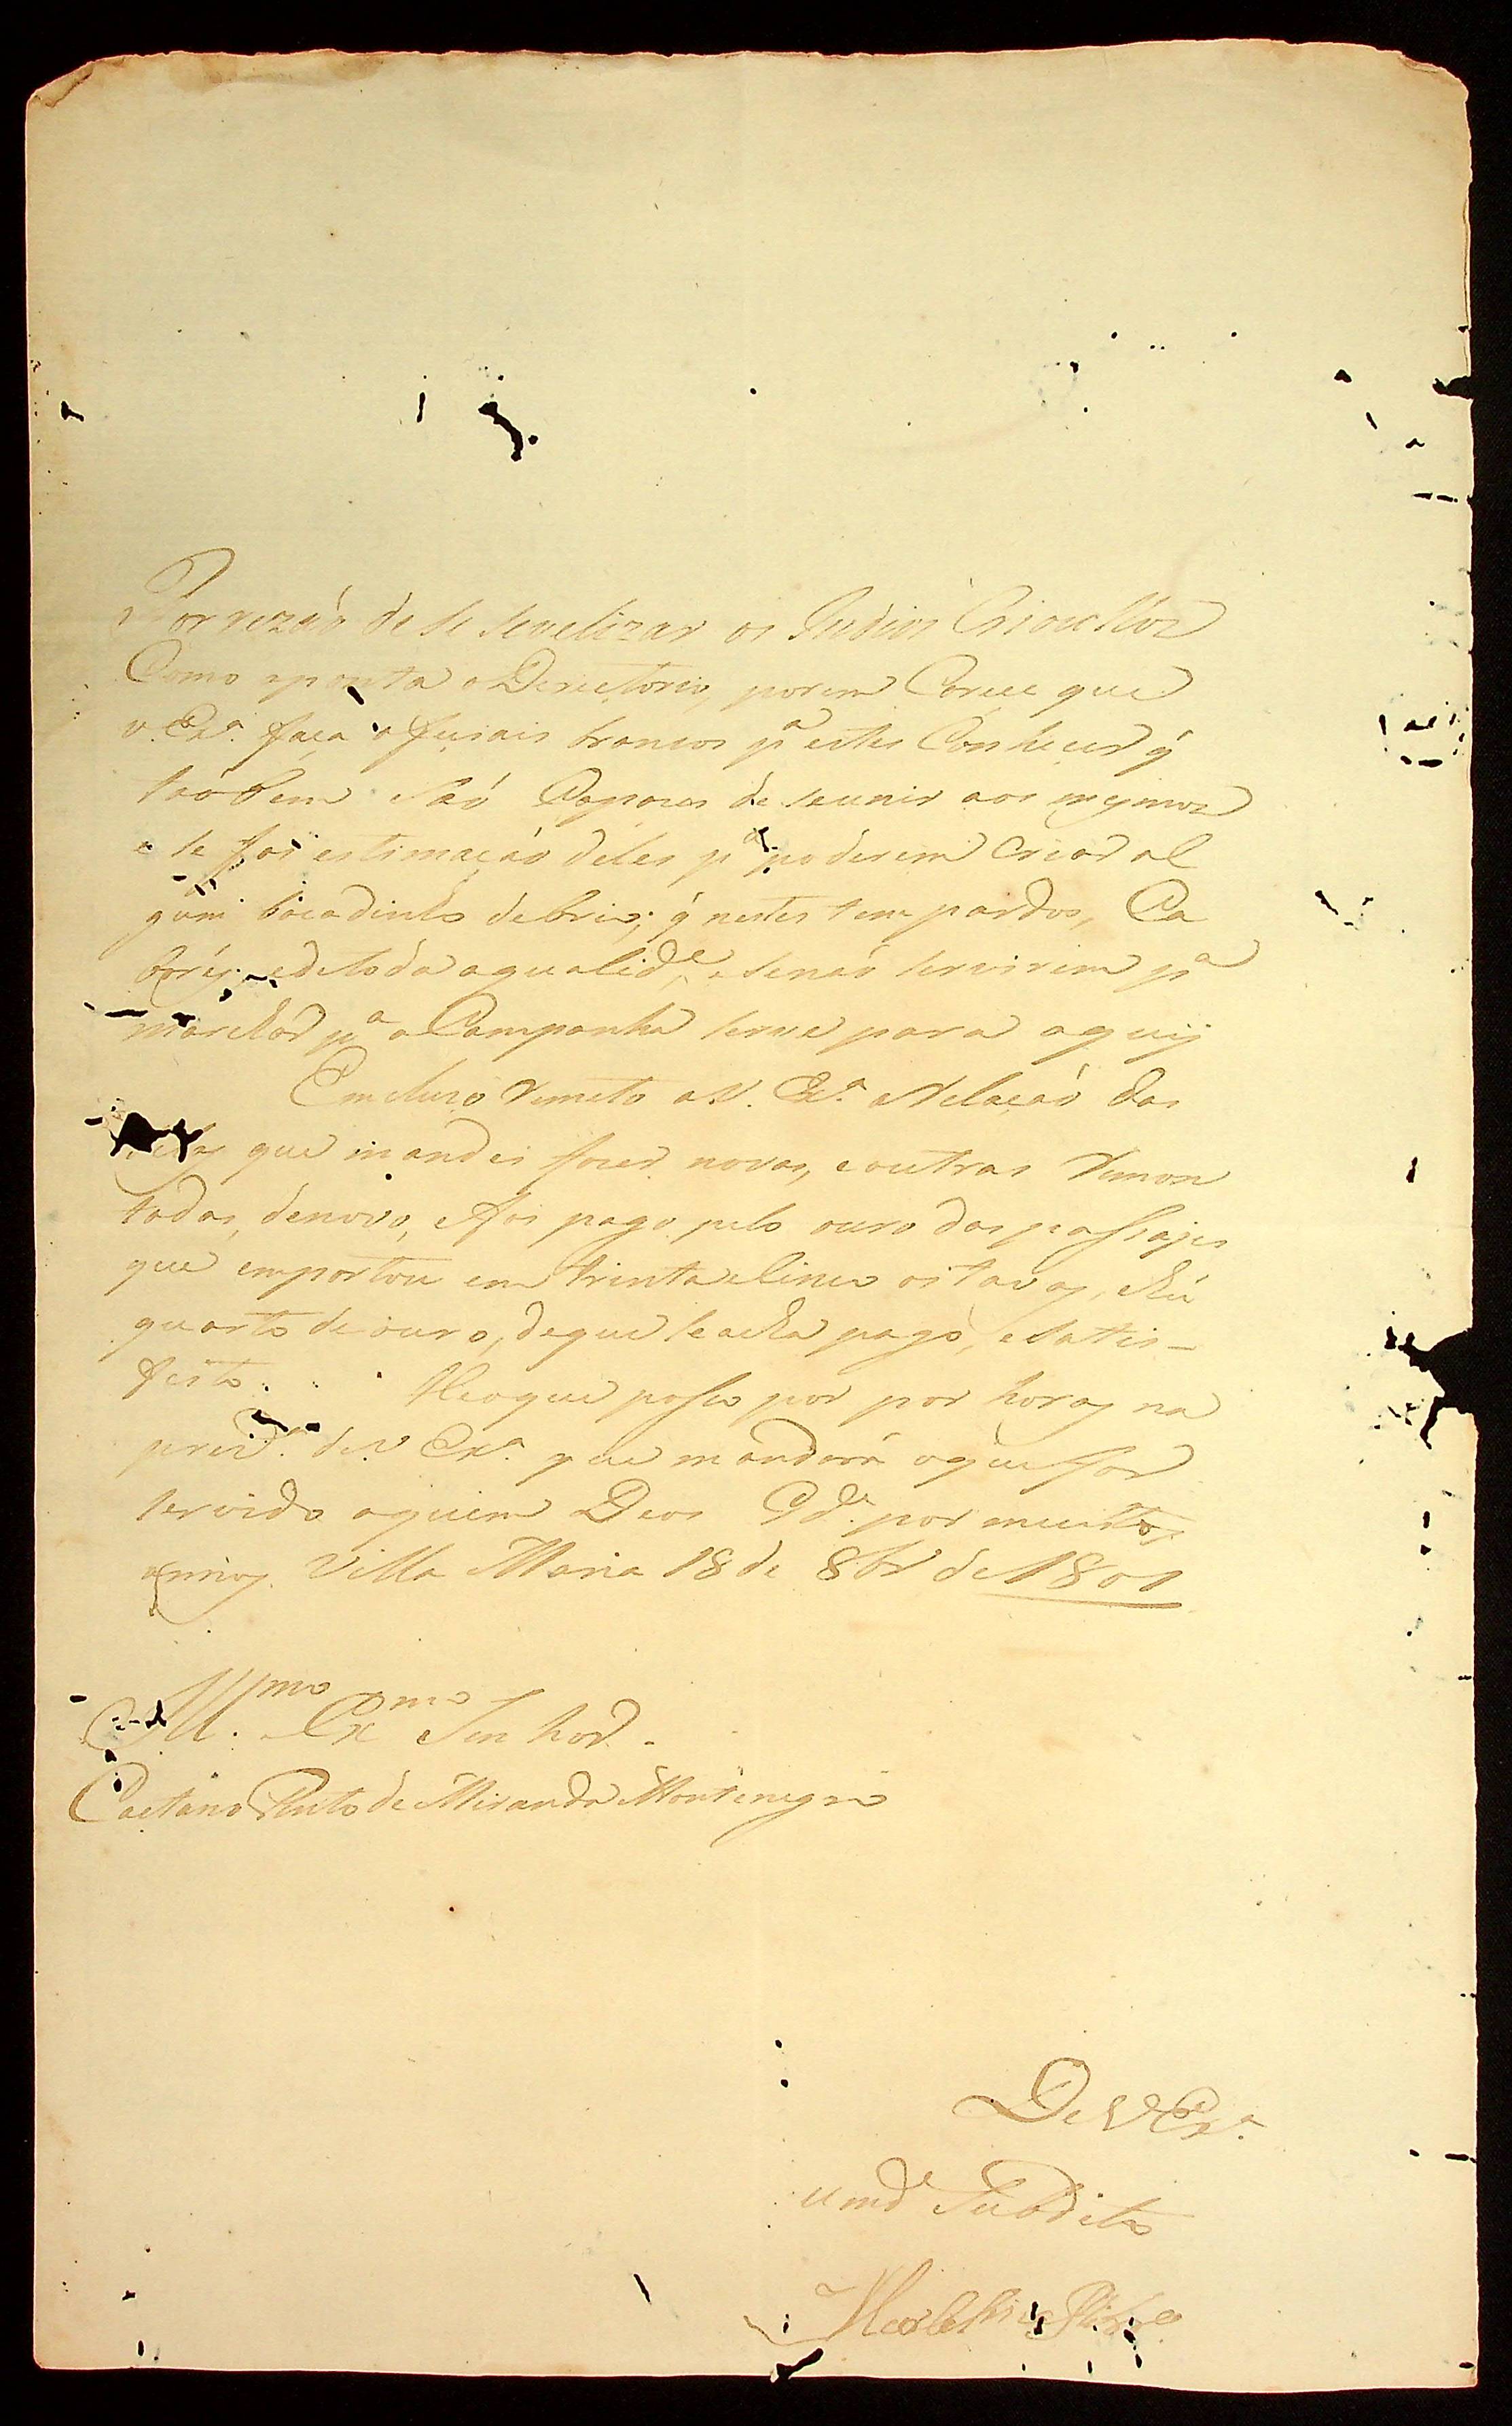 Por rezaó de se sevelizar os Indios Crioullos
Como aponta o Derectorio, porem Carece que
v. Exª. faça ofusiais brancos pª estes Conhecer q̃
taóbem Saó Capazes de seunir aos mesmos
e se fas estimaçaó deles pª poderem Criar al
gum bocadinho debrio; q̃ nestes tem pardos, Ca
borés, edetoda aqualidᵉ, esenaó servirem pª
marchar pª a Campanha serve para aquij
Emcluzo Remeto a V. Exª. a Relaçaó das
que mandei fazer novas, e outras Remon
tadas, denovo, e fas pago pelo ouro das passajes
que emportou em trinta e Sinco oitavas, e hũ
quarto de ouro, de que se acha pago, e Satis-
feito. He o que poso por por horas na
prezª. de V Exª. que mandará oque for
servido aquem Deos Gdᵉ. por muitos
annos. Villa Maria 18 de 8brº de 1801
Illᵐᵒ. e Exᵐᵒ Senhor.
Caetano Pinto de Miranda Montenegro
De V Exª.
umdᵉ Subdito